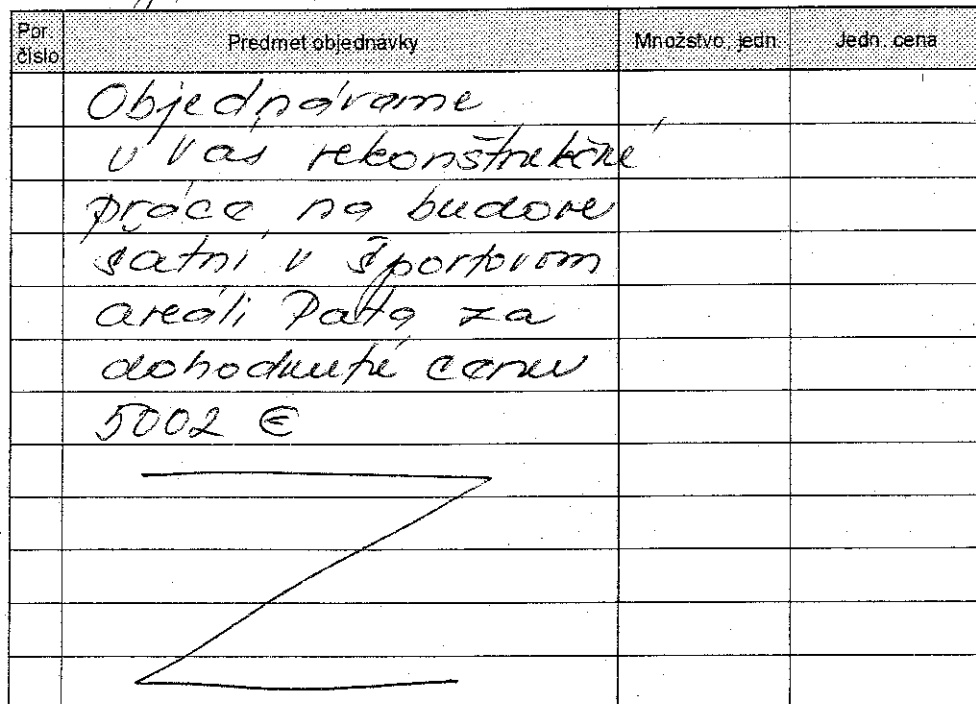 Por. číslo Predmet objednávky Množstvo, jedn. Jedn. cena
Objednávame
u Vás rekonštrukčné
práce na budove
šatní v Športovom
areáli Pata za
dohodnuté cenu
5002 €